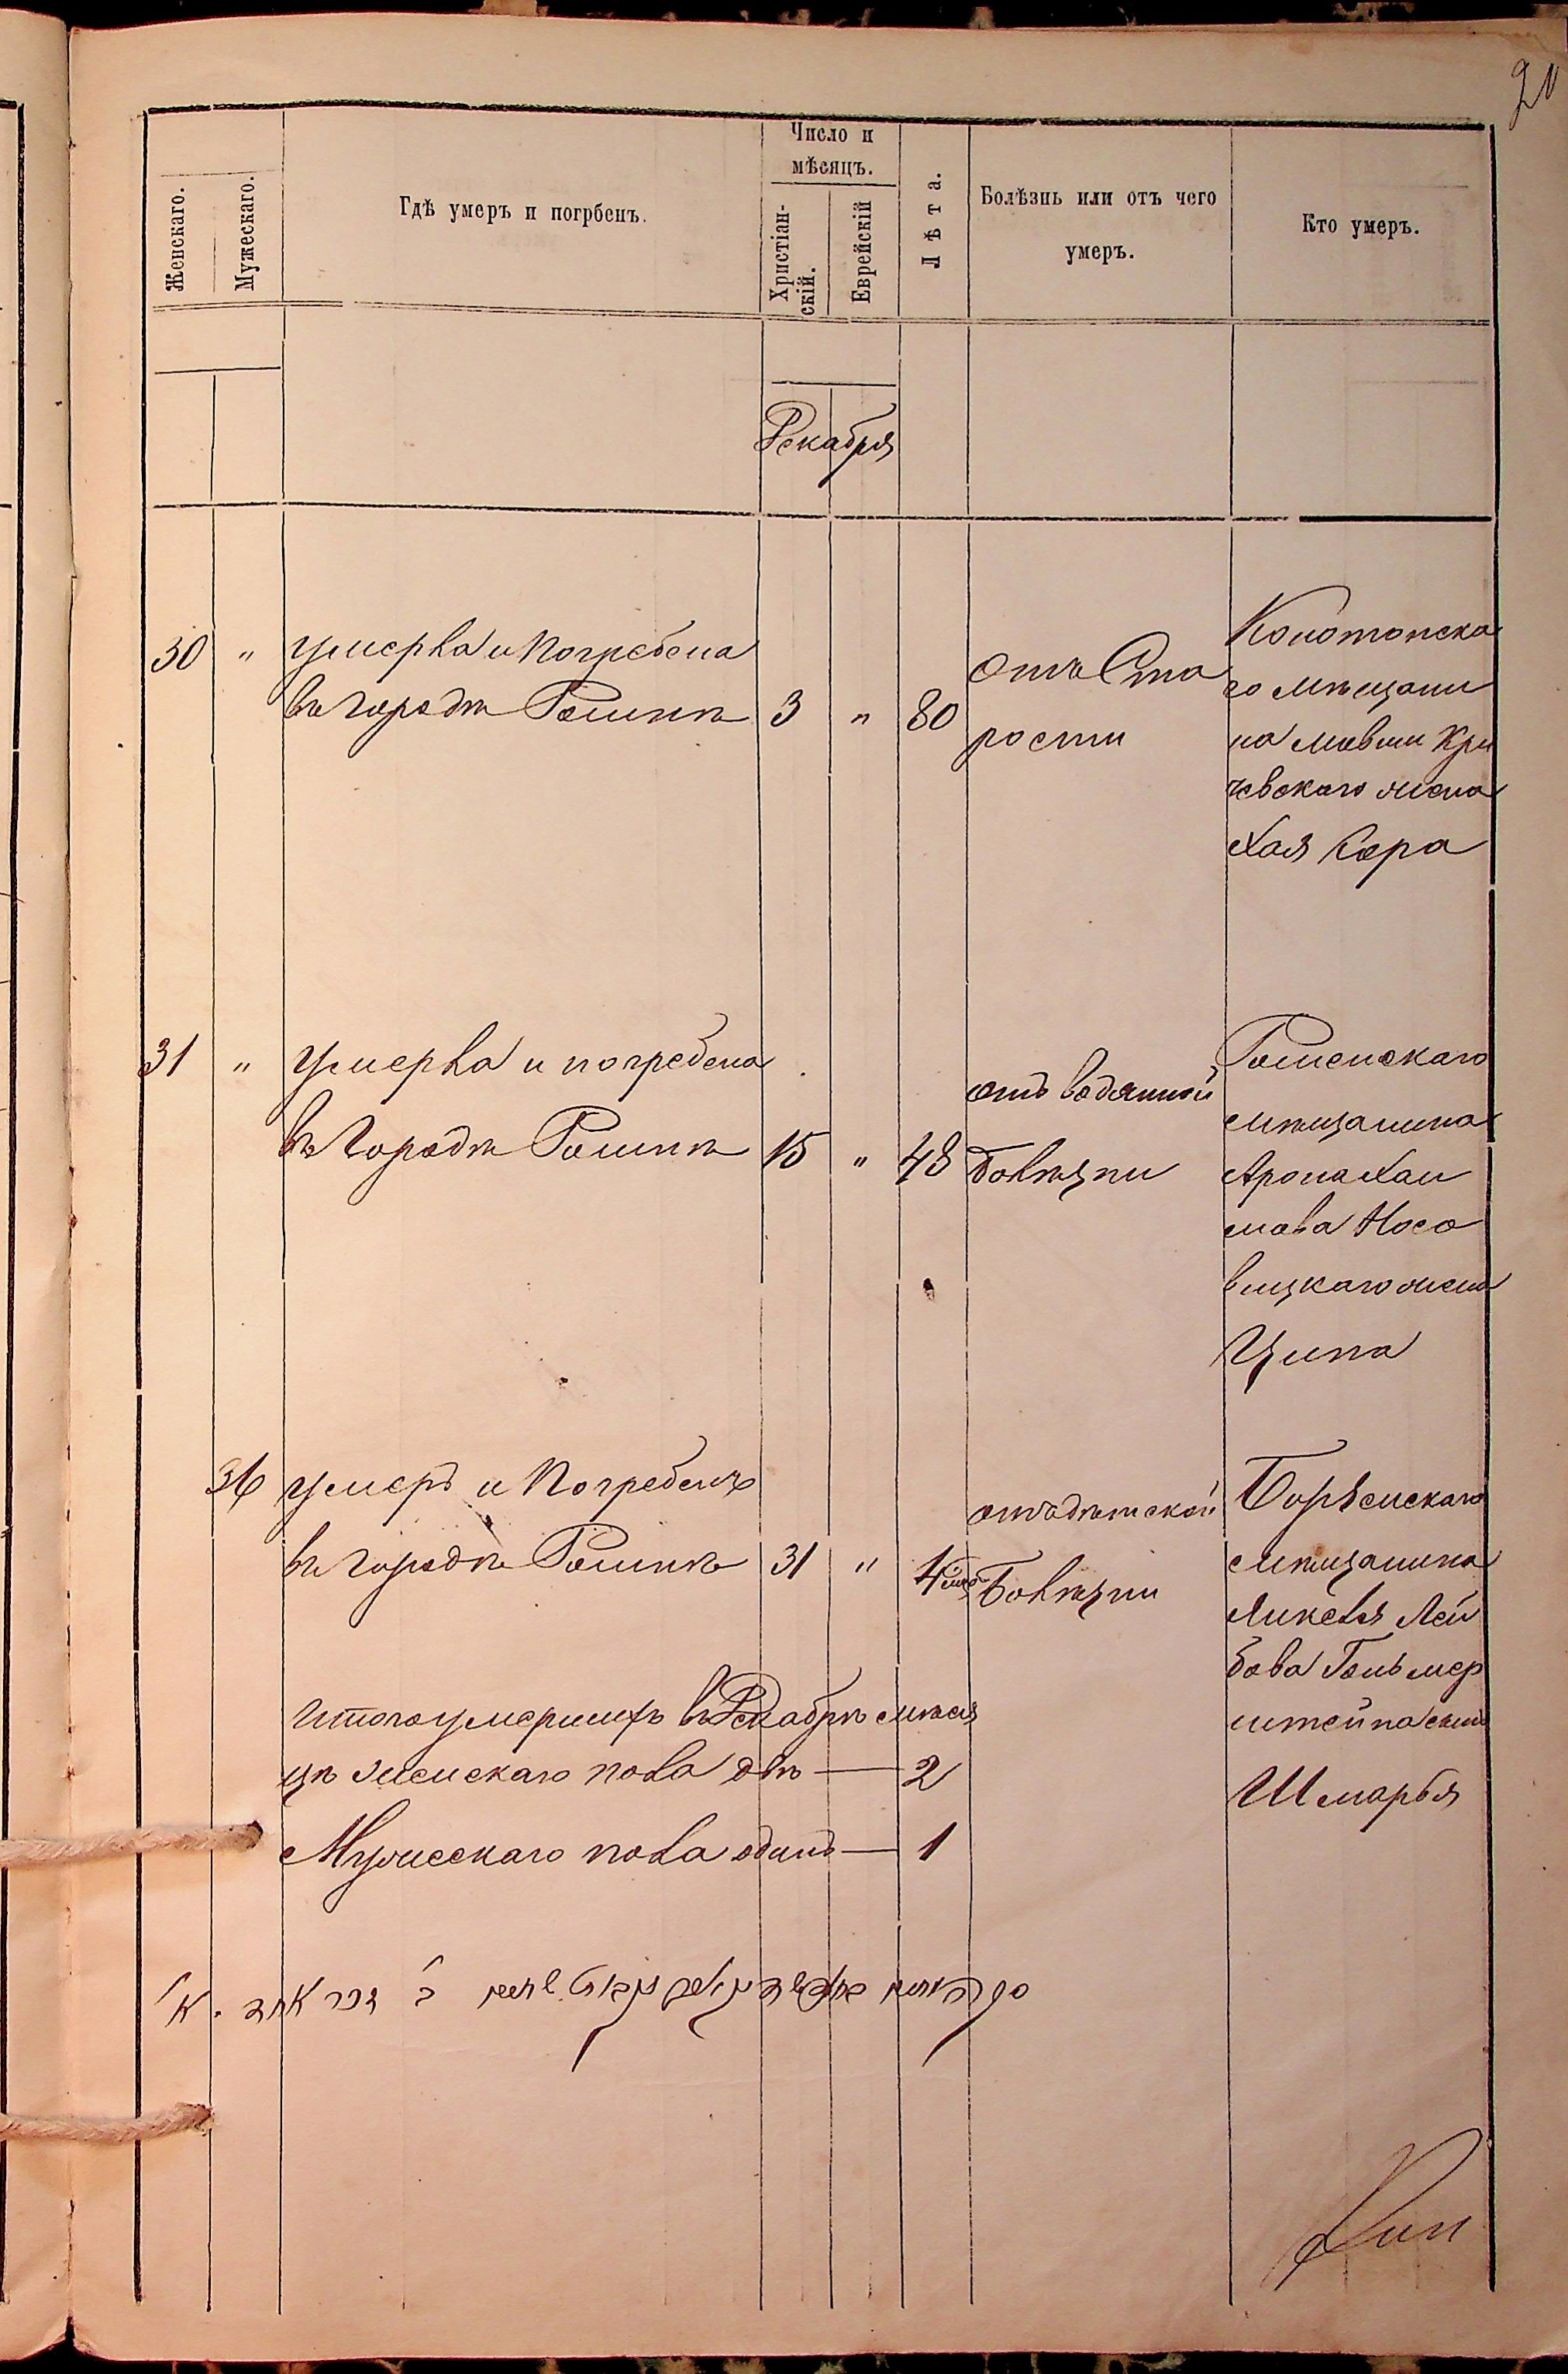 20
Женскаго.
Мужескаго.
Гдѣ умеръ и погрбенъ.
Число и
мѣсяцъ.
Христіан-
скій.
Еврейскій
Лѣта.
Болѣзнь или отъ чего
умеръ.
Кто умеръ.
Декабря
30 " Умерла и Погребена
въ городѣ Ромнѣ 3 " 80
отъ Ста
рости
Конотопска
го мѣщани
на Мовши Кри
чевскаго жена
Хая Сора
31 " Умерла и погребена
въ Городѣ Ромнѣ 15 " 48
отъ водянной
болѣзни
Роменскаго
мѣщанина
Арона Хаи
мова Носо
вицкаго жена
Ципа
36 умеръ и Погребенъ
въ городѣ Ромнѣ 31 "
отъ дѣтской
Болѣзни
Борзенскаго
мѣщанина
Янкеля Лей
бова
штейна сынъ
Шмарья
Итого умершихъ въ Декабрѣ мѣся
цѣ женскаго пола двѣ — 2
Мужескаго пола одинъ — 1